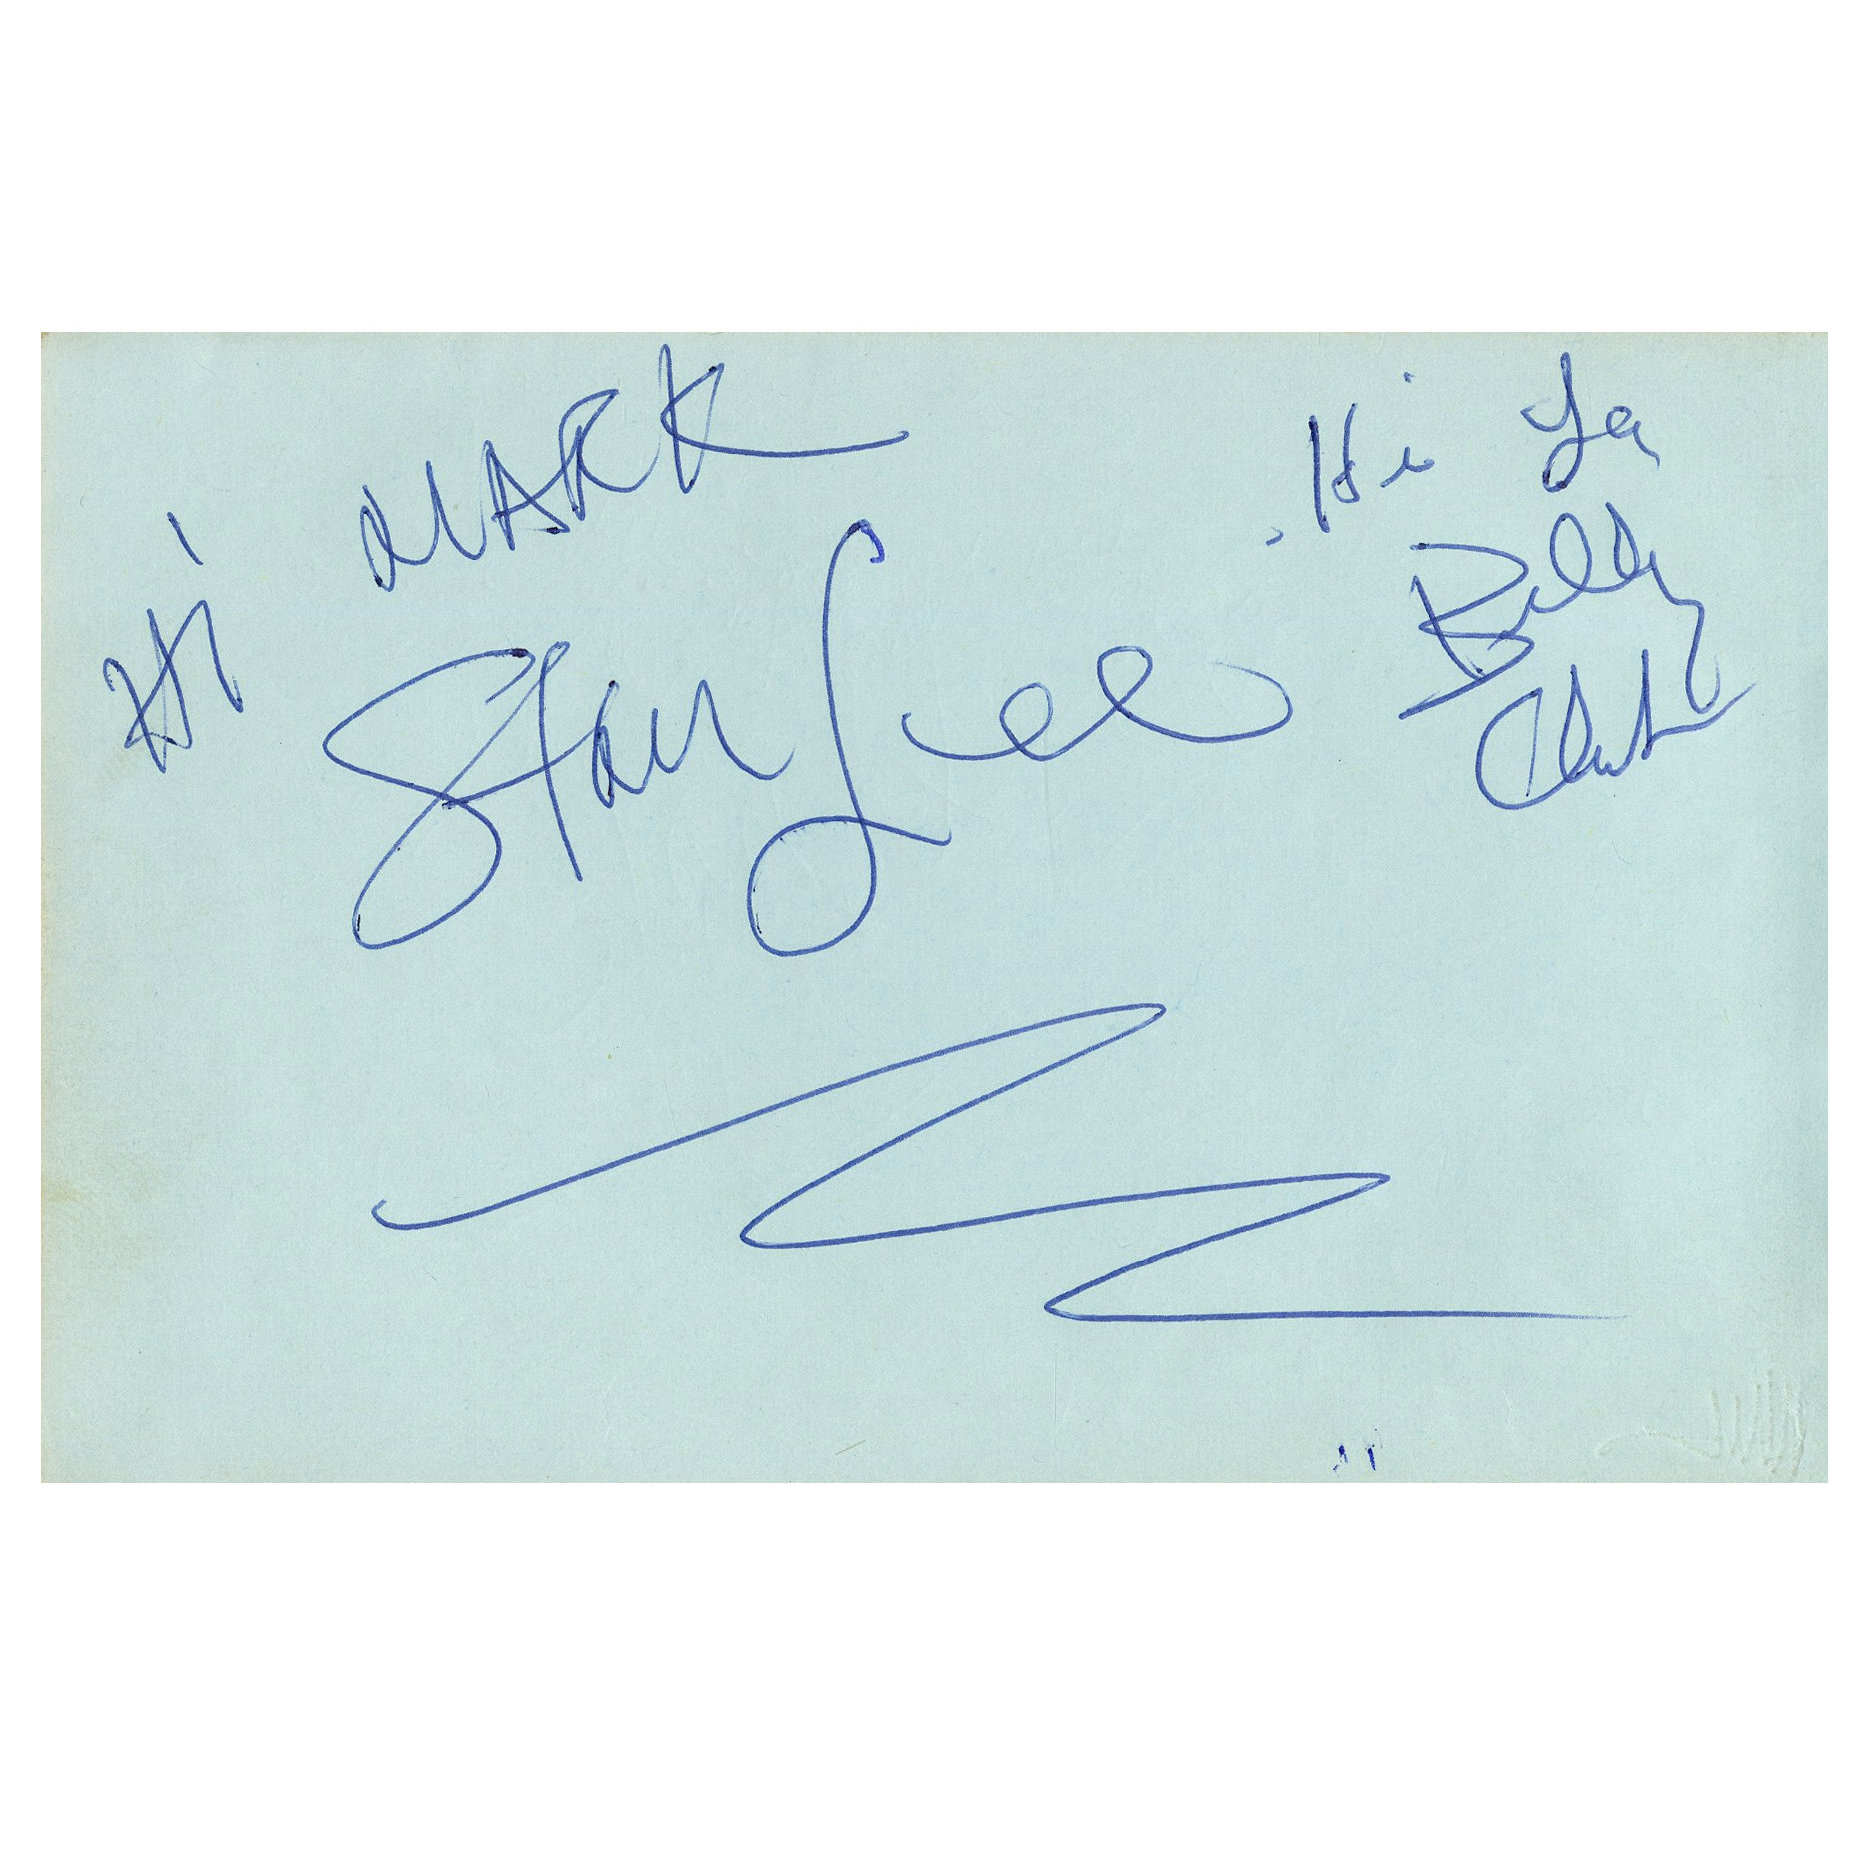 Hi MARK
Stan Lee
Hi Ya
Billy